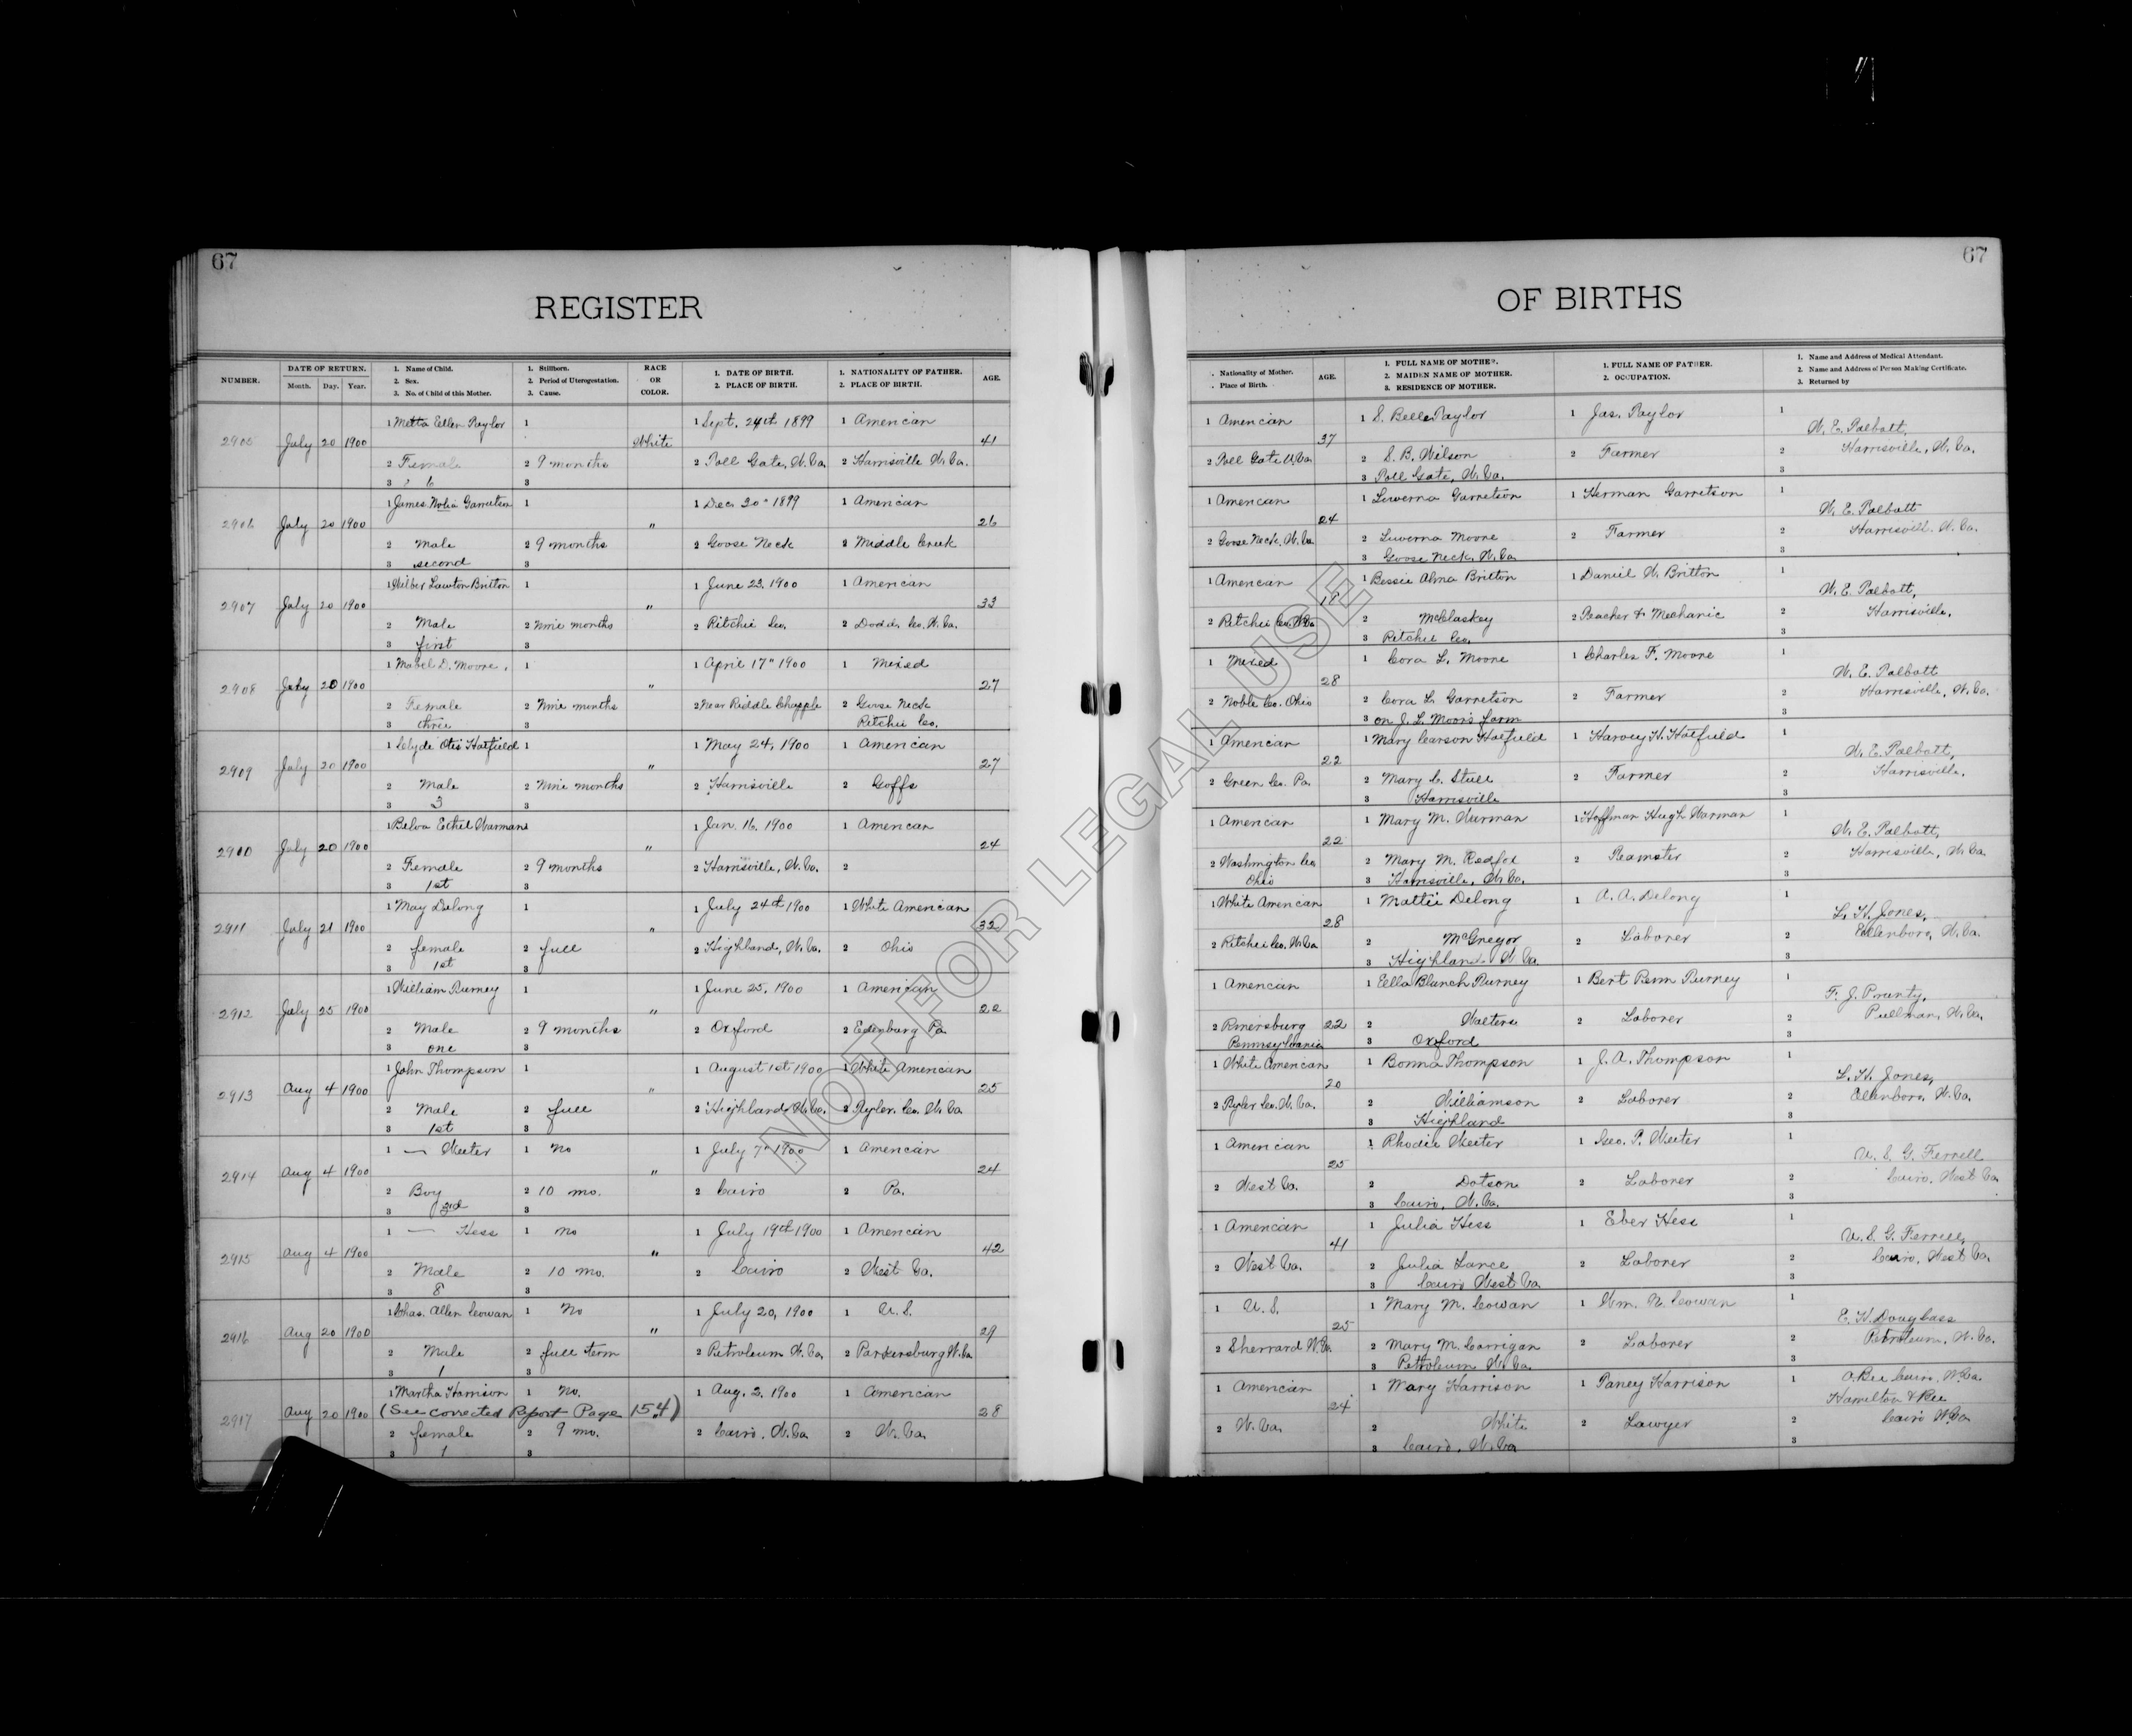 67
REGISTER
NUMBER.
DATE OF RETURN.
Month. Day. Year.
1. Name of Child.
2. Sex.
3. No. of Child of this Mother.
1. Stillborn.
2. Period of Uterogestation.
3. Cause.
RACE
OR
COLOR.
1. DATE OF BIRTH.
2. PLACE OF BIRTH.
1. NATIONALITY OF FATHER.
2. PLACE OF BIRTH.
AGE.
1 Metta Ellen Taylor 1 1 Sept. 24th 1899 1 American
2905 July 20 1900 White 41
2 Female 2 9 months 2 Toll Gate, W. Va. 2 Harrisville W. Va.
3 6 3
1 James Garretson 1 1 Dec 20" 1899 1 American
2906 July 20 1900 " 26
2 Male 2 9 months 2 Goose Neck 2 Middle Creek
3 second 3
1 Wilber Lawton Britton 1 1 June 23, 1900 1 American
2907 July 20 1900 " 33
2 Male 2 Nine months 2 Ritchie Co. 2 Dodd. Co. W. Va.
3 first 3
1 Mabel D. Moore, 1 1 April 17" 1900 1 Mixed
2908 July 20 1900 " 27
2 Female 2 Nine months 2 Near Riddle Chapple 2 Goose Neck
3 three 3 Ritchie Co.
1 Clyde Otis Hatfield 1 1 May 24, 1900 1 American
2909 July 20 1900 " 27
2 Male 2 Nine months 2 Harrisville 2 Goffs
3 3 3
1 Belva Ethel Warman 1 1 Jan. 16, 1900 1 American
2910 July 20 1900 " 24
2 Female 2 9 months 2 Harrisville, W. Va. 2
3 1st 3
1 May Delong 1 1 July 24th 1900 1 White American
2911 July 21 1900 " 32
2 female 2 full 2 Highland, W. Va. 2 Ohio
3 1st 3
1 William Purney 1 1 June 25, 1900 1 American
2912 July 25 1900 " 22
2 Male 2 9 months 2 Oxford 2 Edenburg Pa
3 one 3
1 John Thompson 1 1 August 1st 1900 1 White American
2913 Aug 4 1900 " 25
2 Male 2 full 2 Highland W. Va. 2 Tyler Co. W. Va.
3 1st 3
1 — Weeter 1 No 1 July 7" 1900 1 American
2914 Aug 4 1900 " 24
2 Boy 2 10 mo. 2 Cairo 2 Pa.
3 3
1 — Hess 1 no 1 July 19th 1900 1 American
2915 Aug 4 1900 " 42
2 Male 2 10 mo. 2 Cairo 2 West Va.
3 8 3
1 Chas. Allen Cowan 1 No 1 July 20, 1900 1 U. S.
2916 Aug 20 1900 " 29
2 Male 2 full term 2 Petroleum W. Va. 2 Parkersburg W. Va.
3 1 3
1 Martha Harrison 1 No. 1 Aug. 2, 1900 1 American
2917 Aug 20 1900 (See corrected Report Page 154) 28
2 female 2 9 mo. 2 Cairo, W. Va 2 W. Va.
3 1 3
67
OF BIRTHS
. Nationality of Mother.
. Place of Birth.
AGE.
1. FULL NAME OF MOTHER.
2. MAIDEN NAME OF MOTHER.
3. RESIDENCE OF MOTHER.
1. FULL NAME OF FATHER.
2. OCCUPATION.
1. Name and Address of Medical Attendant.
2. Name and Address of Person Making Certificate.
3. Returned by
1 American 1 S. Belle Taylor 1 Jas. Taylor 1
37 W. E. Talbott,
2 Toll Gate W. Va. 2 S. B. Wilson 2 Farmer 2 Harrisville, W. Va.
3 Toll Gate, W. Va. 3
1 American 1 Luverna Garretson 1 Herman Garretson 1
24 W. E. Talbott
2 Goose Neck, W. Va 2 Luverna Moore 2 Farmer 2 Harrisvill. W. Va.
3 Goose Neck, W. Va 3
1 American 1 Bessie Alma Britton 1 Daniel W. Britton 1
W. E. Talbott,
2 Ritchie Co. W. Va 2 McClaskey 2 Teacher & Mechanic 2 Harrisville,
3 Ritchie Co. 3
1 Mixed 1 Cora L. Moore 1 Charles F. Moore 1
28 W. E. Talbott
2 Noble Co. Ohio 2 Cora L. Garretson 2 Farmer 2 Harrisville, W. Va.
3 on J. L. Moors farm 3
1 American 1 Mary Carson Hatfield 1 Harvey H. Hatfield 1
22 W. E. Talbott,
2 Green Co. Pa. 2 Mary C. Stull 2 Farmer 2 Harrisville,
3 Harrisville 3
1 American 1 Mary M. Warman 1 Hoffman Hugh Warman 1
22 W. E. Talbott,
2 Washington Co 2 Mary M. Redfox 2 Teamster 2 Harrisville, W. Va.
Ohio 3 Harrisville, W. Va. 3
1 White American 1 Mattie Delong 1 A. A. Delong 1
28 L. H. Jones,
2 Ritchie Co. W. Va 2 McGregor 2 Laborer 2 Ellenboro, W. Va.
3 Highland W Va. 3
1 American 1 Ella Blanch Purney 1 Bert Penn Purney 1
F. J. Prunty,
2 Rimersburg 22 2 Walters 2 Laborer 2 Pullman, W. Va.
Pennsylvania 3 Oxford 3
1 White American 1 Bonna Thompson 1 J. A. Thompson 1
20 L. H. Jones,
2 Tyler Co. W. Va. 2 Williamson 2 Laborer 2 Ellenboro, W. Va.
3 Highland 3
1 American 1 Rhodie Weeter 1 Geo. P. Weeter 1
25 U. S. G. Ferrell
2 West Va. 2 Dotson 2 Laborer 2 Cairo, West Va
3 Cairo, W. Va. 3
1 American 1 Julia Hess 1 Eber Hess 1
41 U. S. G. Ferrell,
2 West Va. 2 Julia Lance 2 Laborer 2 Cairo, West Va.
3 Cairo West Va. 3
1 U. S. 1 Mary M. Cowan 1 Wm. N. Cowan 1
25 E. H. Douglass
2 Sherrard W. Va. 2 Mary M. Carrigan 2 Laborer 2 Petroleum, W. Va.
3 Petroleum W. Va. 3
1 American 1 Mary Harrison 1 Paney Harrison 1 O. Bee Cairo, W. Va.
24 Hamilton & Bee
2 W. Va. 2 White 2 Lawyer 2 Cairo W. Va
3 Cairo, W. Va 3
NOT FOR LEGAL USE